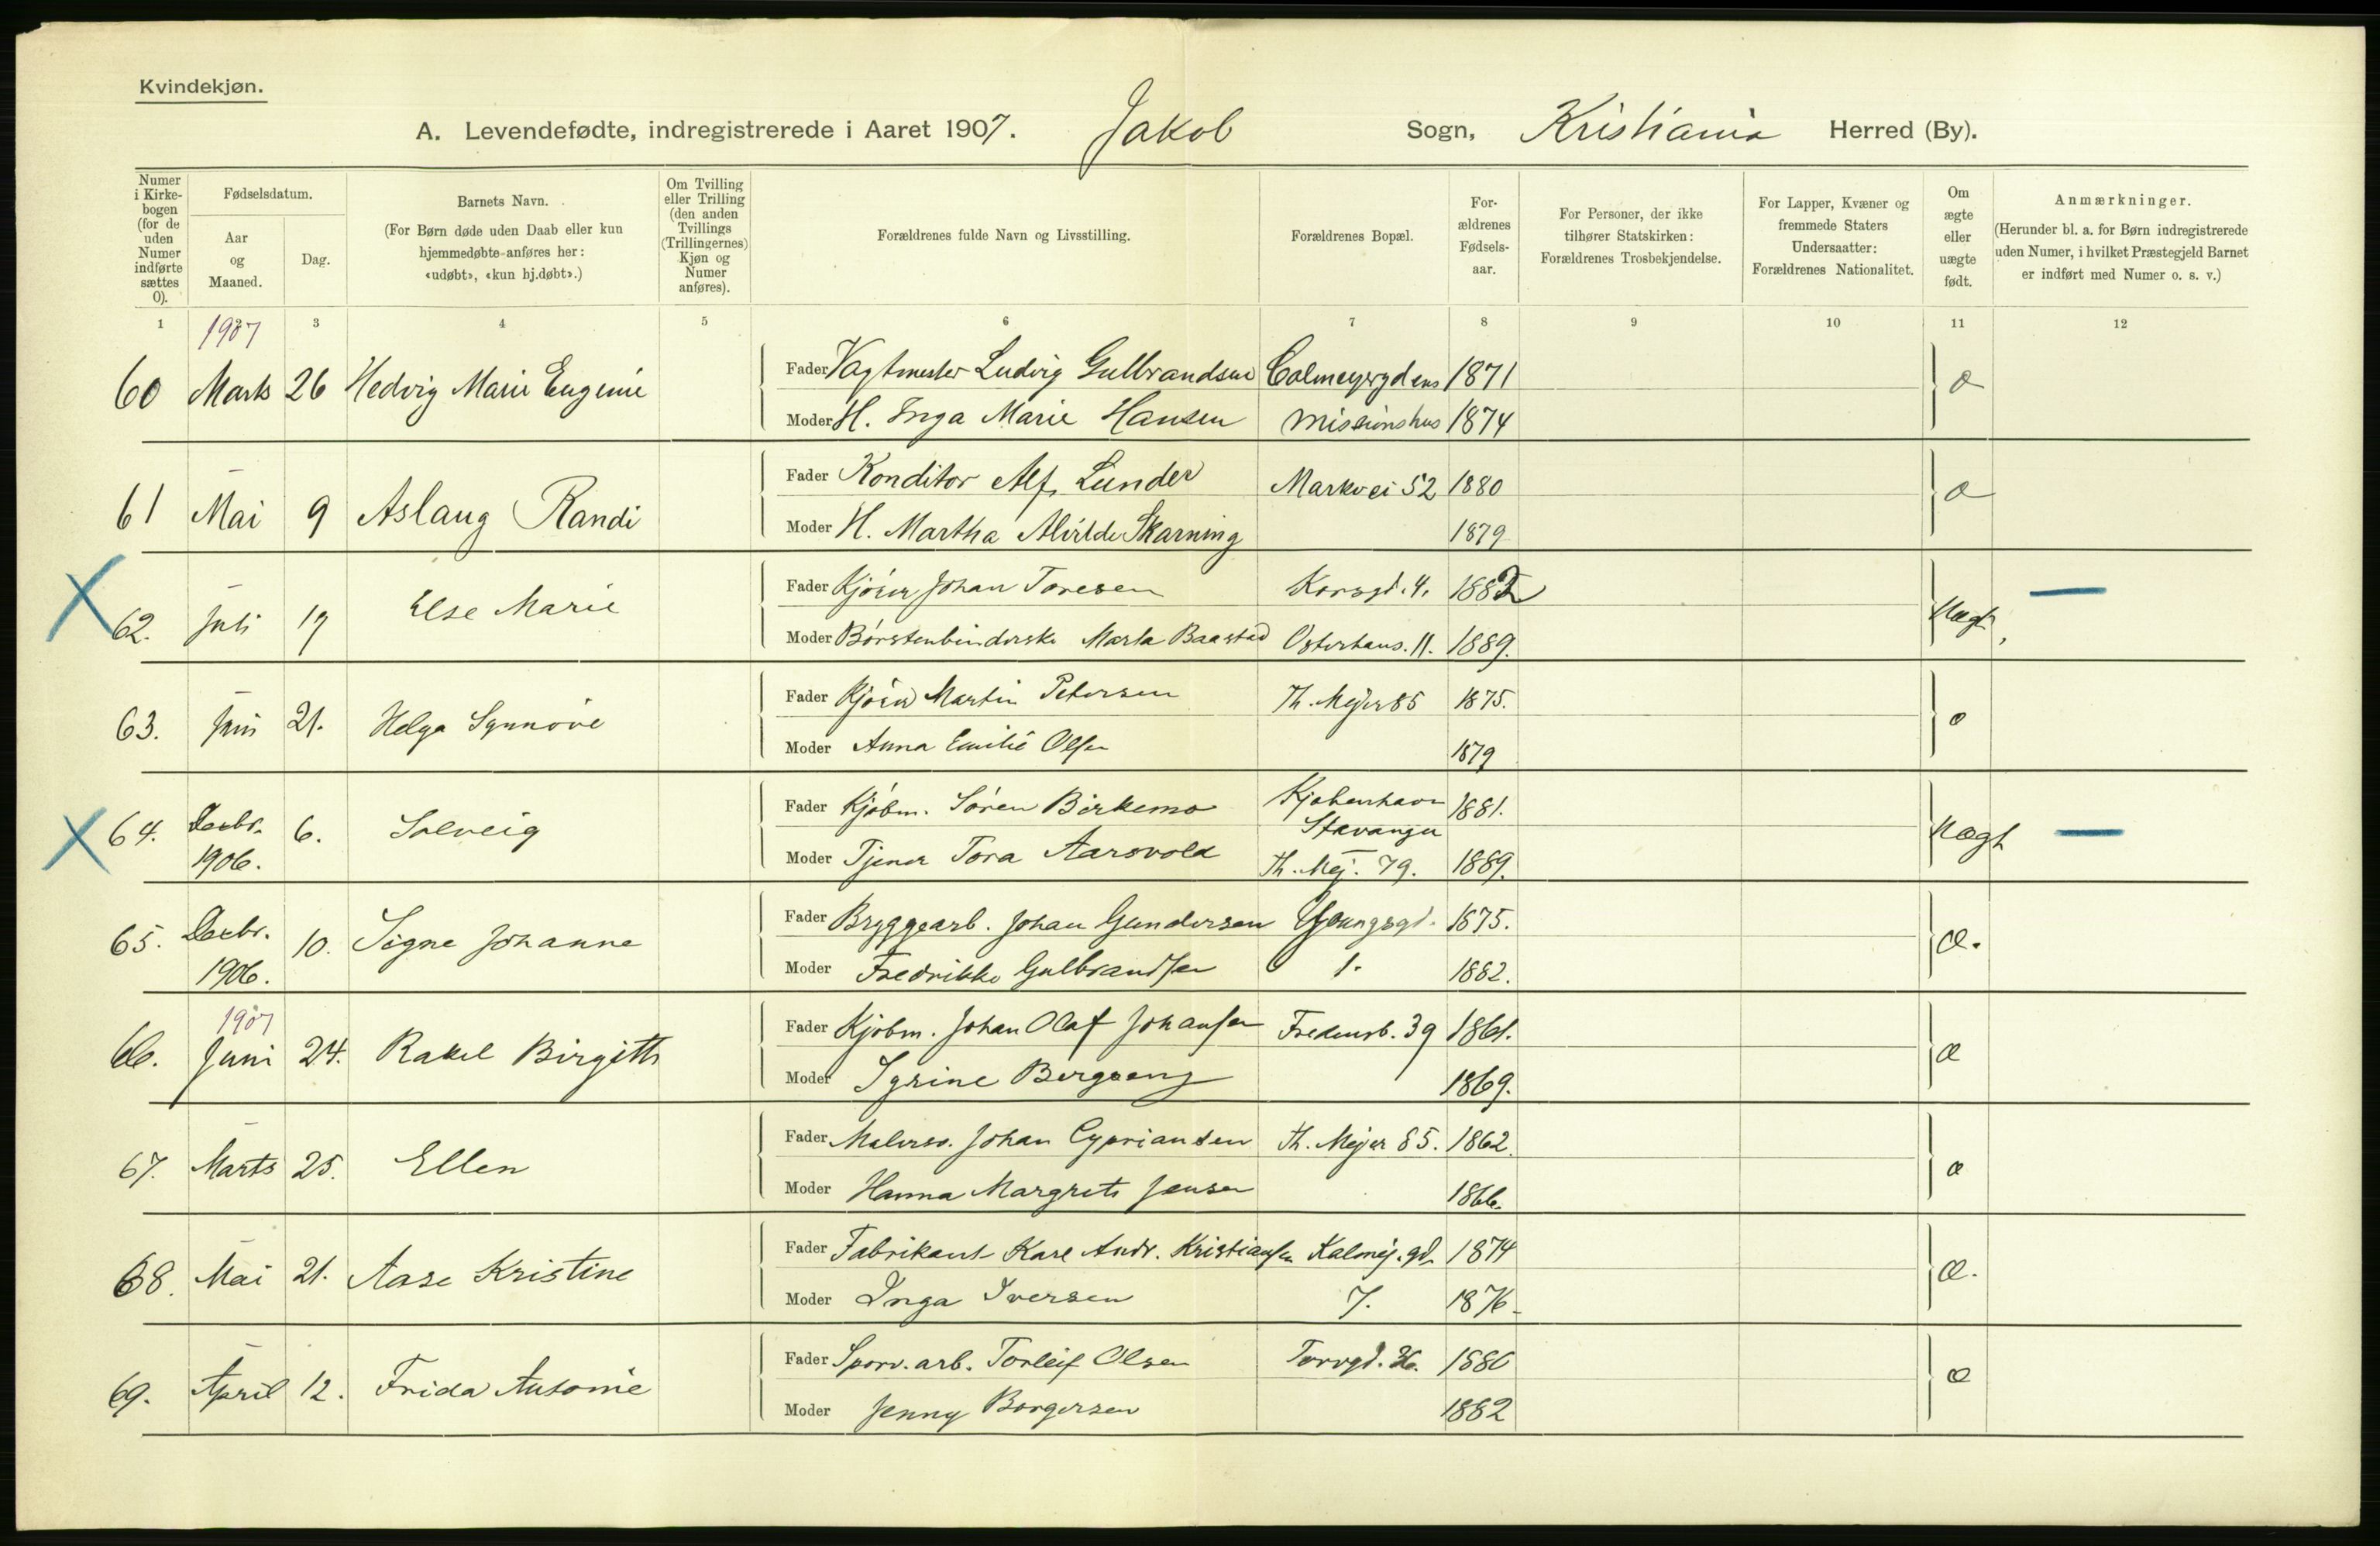 Kvindekjøn.
A. Levendefødte, indregistrerede i Aaret 1907. Jakob Sogn, Kristiania Herred (By).
Numer i Kirkebogen (for de uden Numer indførte sættes 0).
Fødselsdatum.
Aar og Maaned.
Dag.
Barnets Navn.
(For Børn døde uden Daab eller kun hjemmedøbte anføres her: «udøbt», «kun hj.døbt».)
Om Tvilling eller Trilling (den anden Tvillings (Trillingernes) Kjøn og Numer anføres).
Forældrenes fulde Navn og Livsstilling.
Forældrenes Bopæl.
For-ældrenes Fødsels-aar.
For Personer, der ikke tilhører Statskirken: Forældrenes Trosbekjendelse.
For Lapper, Kvæner og fremmede Staters Undersaatter: Forældrenes Nationalitet.
Om ægte eller uægte født.
Anmærkninger.
(Herunder bl. a. for Børn indregistrerede uden Numer, i hvilket Præstegjeld Barnet er indført med Numer o. s. v.)
1 2 3 4 5 6 7 8 9 10 11 12
1907
60 Marts 26 Hedvig Marie Eugenie Fader Vagtmester Ludvig Gulbrandsen Calmeyergdens 1871 æ
Moder H. Inga Marie Hansen Missionshus 1874
61 Mai 9 Aslaug Randi Fader Konditor Alf Lunder Markvei 52 1880 æ
Moder H. Martha Skarning 1879
X 62. Juli 17 Else Marie Fader Kjører Johan Toresen Korsgd. 4. 1882 uægt, —
Moder Børstenbinderske Marta Baastad Osterhaus. 11. 1889.
63. Juni 21. Helga Synnøve Fader Kjører Martin Petersen Th. Mejer 85 1875. æ
Moder Anna Emilie Olsen 1879
X 64. Decbr. 1906. 6. Solveig Fader Kjøbm. Søren Birkemo Kjøbenhavn 1881. uægt —
Stavanger
Moder Tjener Tora Aarsvold Th. Mej. 79. 1889.
65. Decbr. 1906. 10. Signe Johanne Fader Bryggearb. Johan Gundersen Youngsgd. 1875. æ.
Moder Fredrikke Gulbrandsen 1. 1882.
1907
66. Juni 24. Rakel Birgitte Fader Kjøbm. Johan Olaf Johansen Fredensb. 39 1861. æ
Moder Syrine Bergseng 1869.
67. Marts 25. Ellen Fader Malersv. Johan Cypriansen Th. Mejer 85. 1862. æ
Moder Hanna Margrete Jensen 1866.
68. Mai 21. Aase Kristine Fader Fabrikant Karl Andr. Kristiansen Kalmej. gd. 1874 æ.
Moder Inga Iversen 7. 1876
69. April 12. Frida Antonie Fader Sporv. arb. Torleif Olsen Torvgd. 1880 æ
Moder Jenny Borgersen 1882